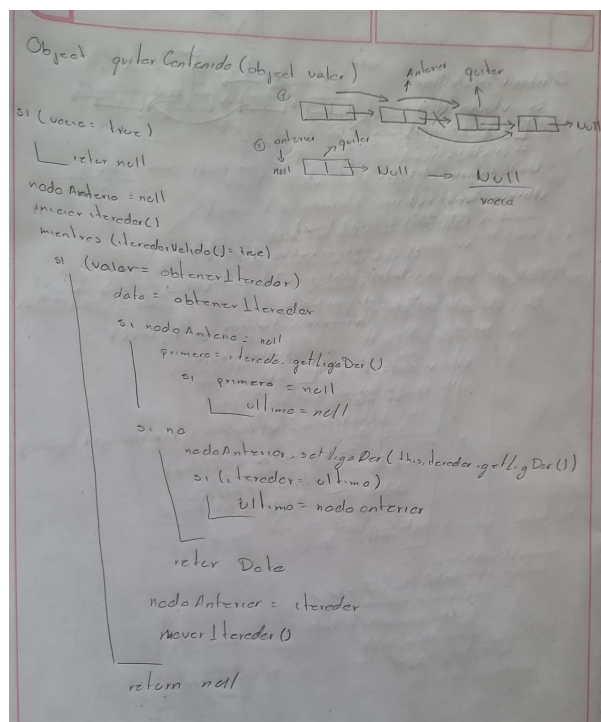 Object quitarContenido(object valor)
Anterior quitar
①
Null
si (vacia = true)
② anterior quitar
null Null → Null
vacia
reter null
nodo Anterio = null
iniciar iterador()
mientras (iteradorValido() = true)
si (valor = obtenerIterador)
dato = obtenerIterador
si nodoAnterio = null
primero = iterado.getLigaDer()
si primero = null
ultimo = null
si no
nodoAnterior.setLigaDer(this.iterador.getLigDer())
si (iterador = ultimo)
ultimo = nodo anterior
reter Dato
nodoAnterior = iterador
moverIterador()
return null